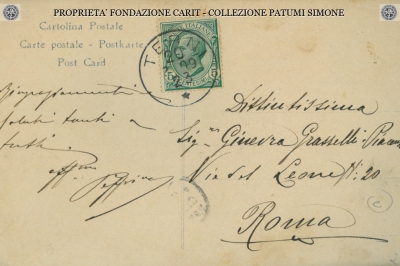 PROPRIETA' FONDAZIONE CARIT - COLLEZIONE PATUMI SIMONE
Cartolina Postale
Carte postale - Postkarte
Post Card
TERNI
Ringraziamenti
saluti tanti a
tutti
Distintissima
Sig.ra Ginevra Grasselli
Via del Leone N: 20
Roma